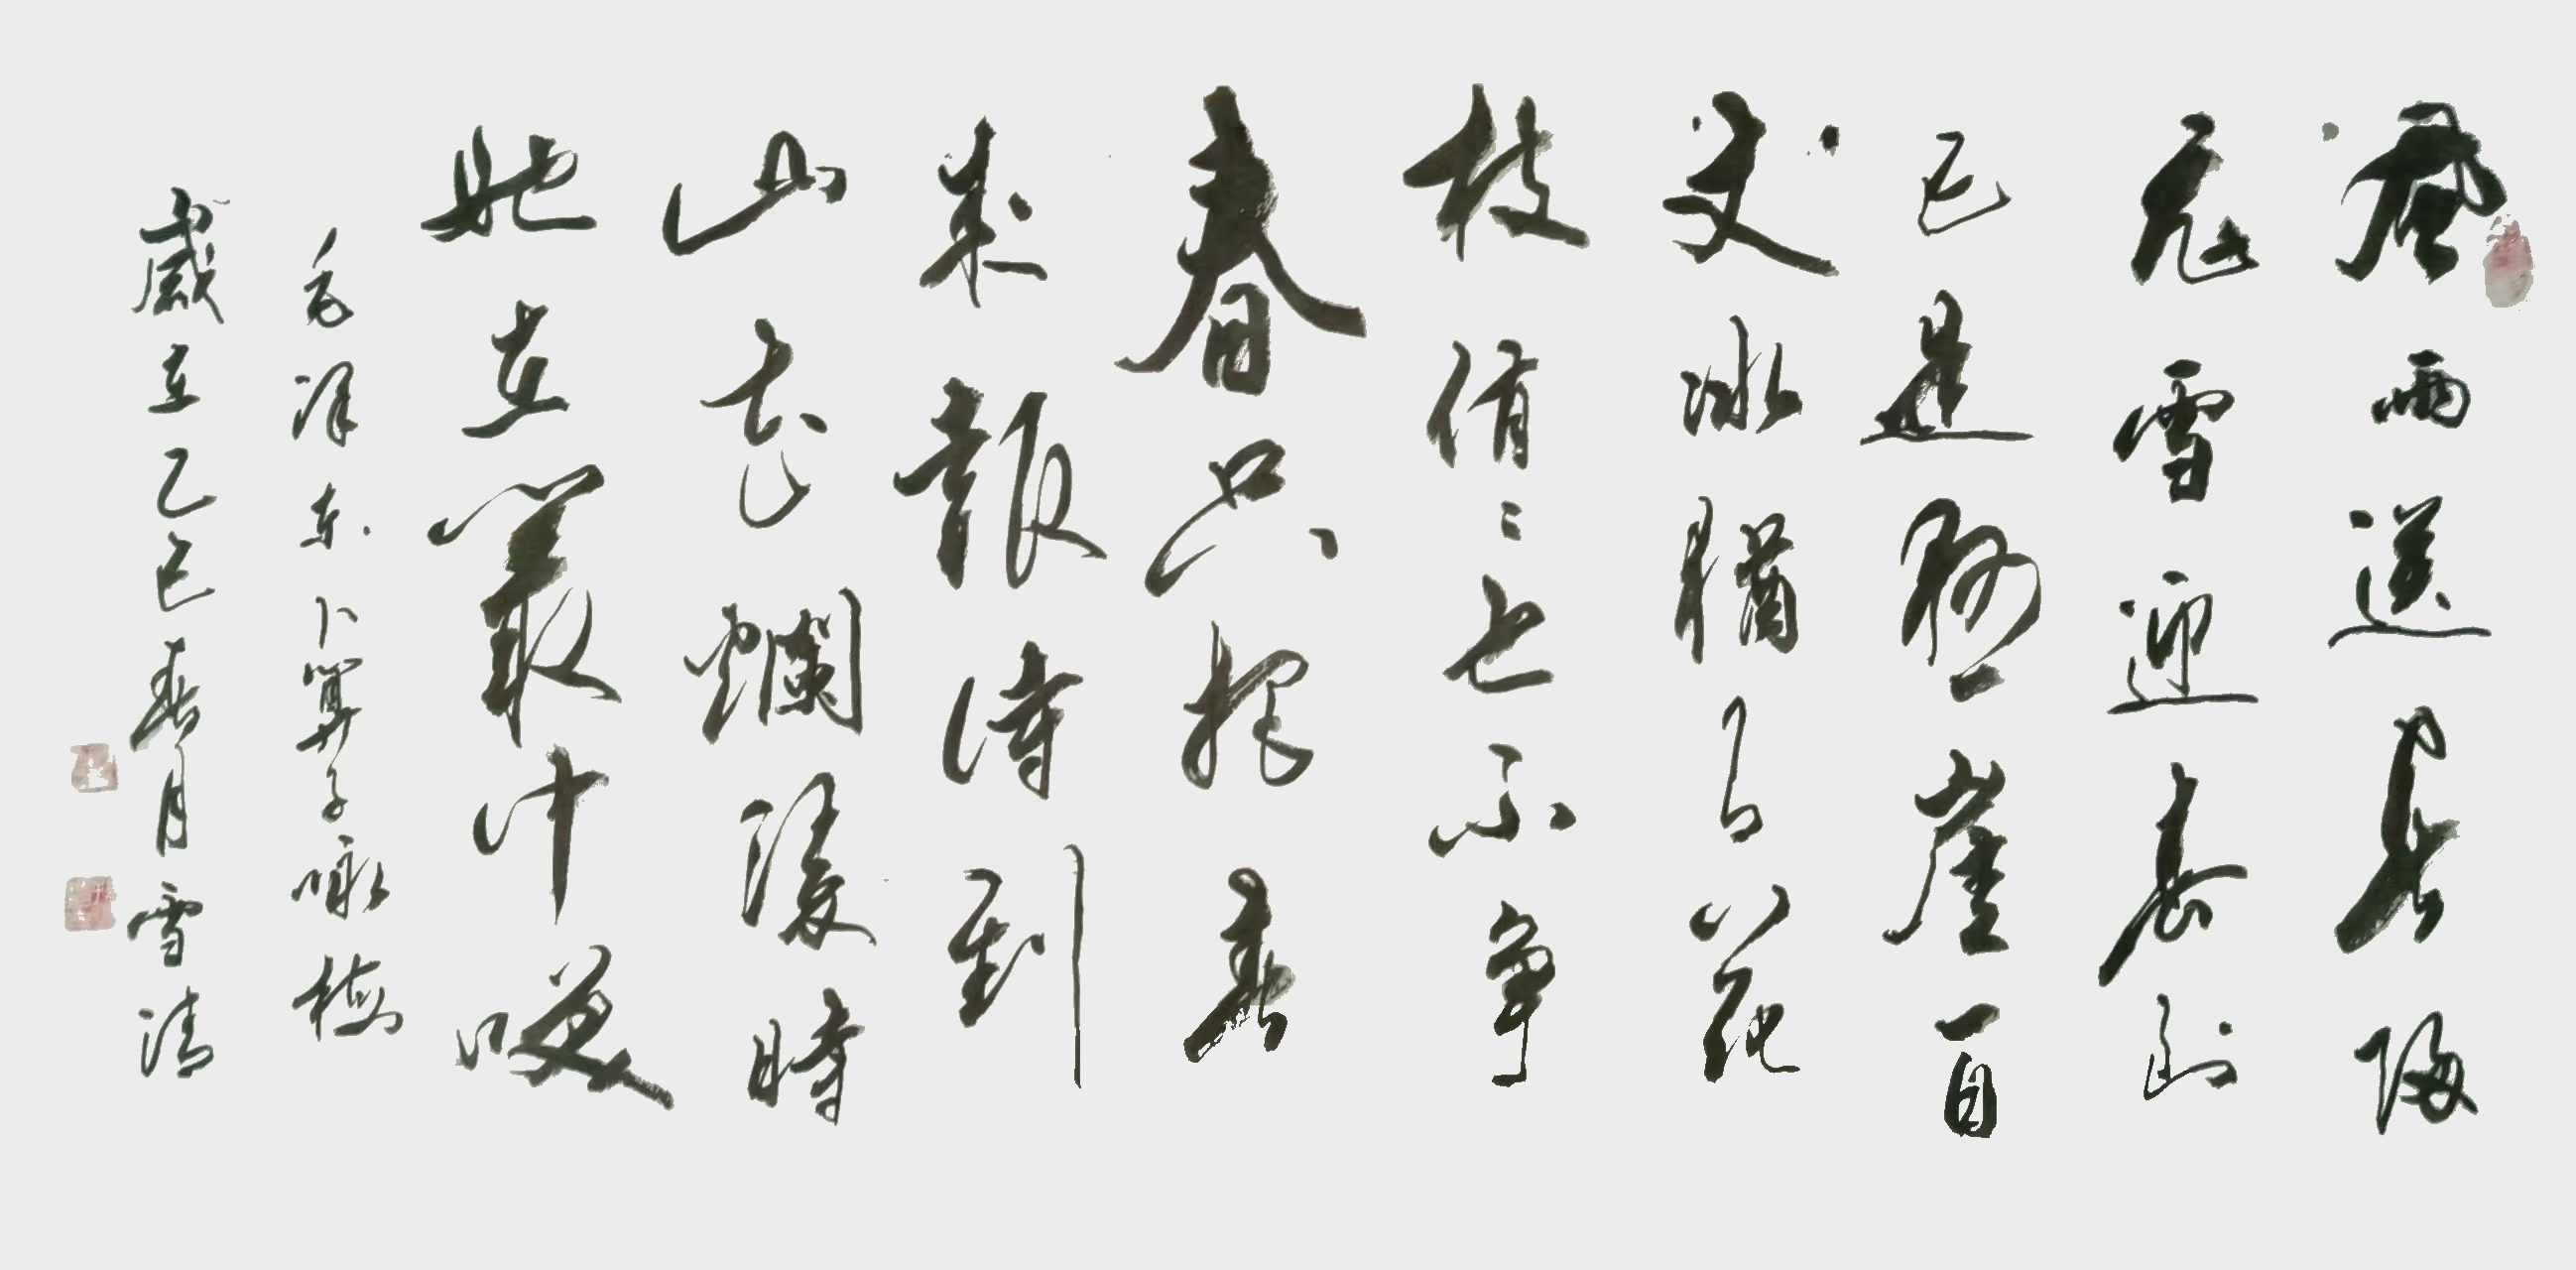 風雨送春歸
飛雪迎春到
已是懸崖百
丈冰猶有花
枝俏〻也不爭
春只把春
來報待到
山花爛漫時
她在叢中笑
毛澤東卜算子詠梅
歲在乙巳春月雪清